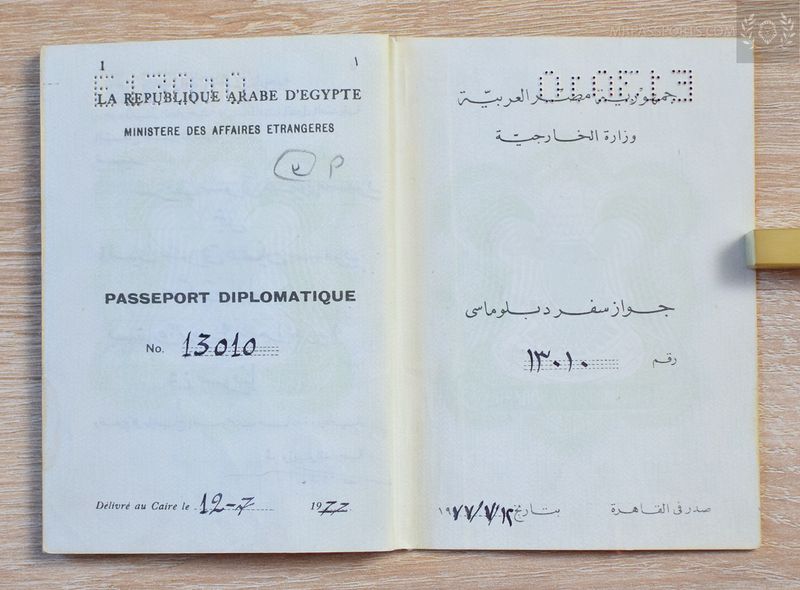 1
١
E13010
LA REPUBLIQUE ARABE D'EGYPTE
MINISTERE DES AFFAIRES ETRANGERES
PASSEPORT DIPLOMATIQUE
No. 13010
Délivré au Caire le 12-7 1977
جمهورية مصر العربيّة
وزارة الخارجيّة
جواز سفر دبلوماسى
رقم ١٣٠١٠
صدر فى القاهرة بتاريخ ١٩٧٧/٧/١٢